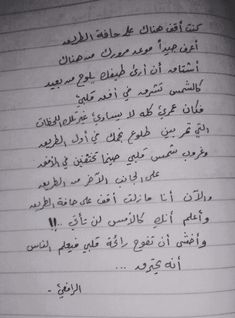 كنت أقف هناك على حافة الطريق
أعرف جيداً موعد مرورك من هناك
أشتاق أن أرى طيفك يلوح من بعيد
كالشمس تشرق في أفق قلبي
فكان عمري كله لا يساوي غير تلك اللحظات
التي تمر بين طلوع نجمك في أول الطريق
وغروب شمس قلبي حينما تختفين في الأفق
على الجانب الآخر من الطريق
والآن أنا مازلت أقف على حافة الطريق
وأعلم أنك كالأمس لن تأتي ..!!
وأخشى أن تفوح رائحة قلبي فيعلم الناس
أنه يحترق ...
الرافعي -